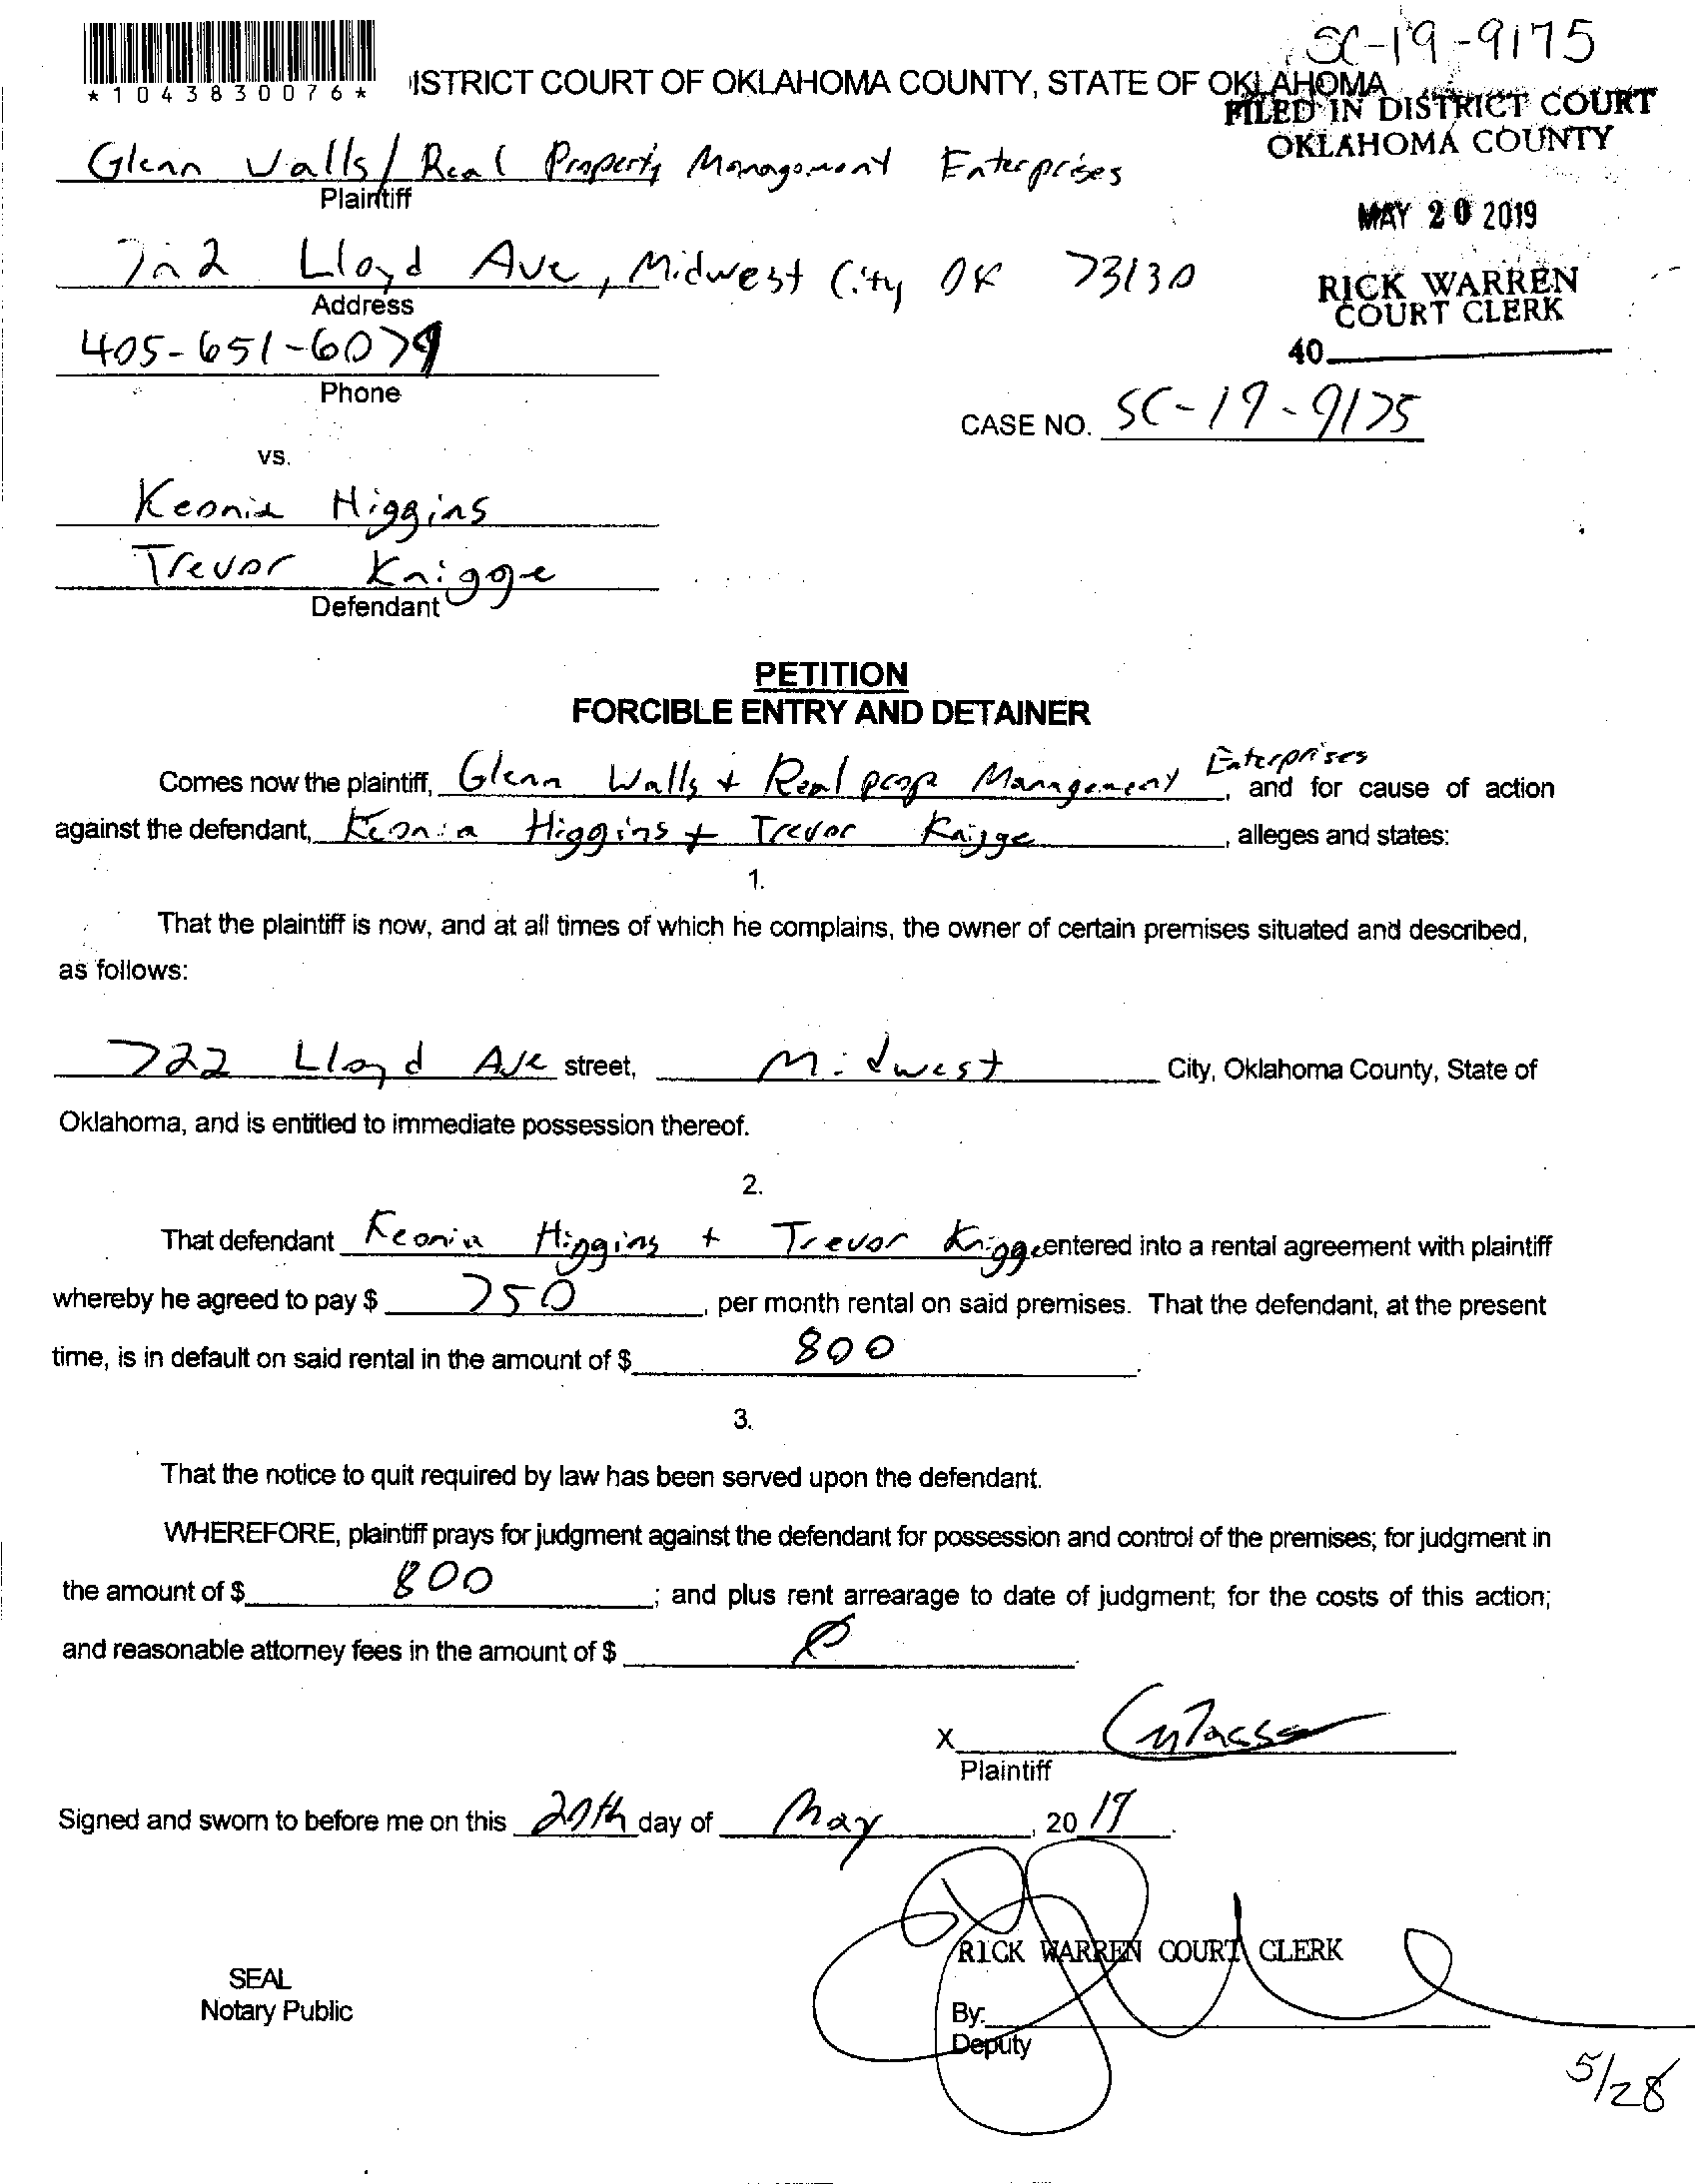 SC-19-9175
*1043830076*
ISTRICT COURT OF OKLAHOMA COUNTY, STATE OF OKLAHOMA
FILED IN DISTRICT COURT
OKLAHOMA COUNTY
Glenn Walls/Real Property Management Enterprises
Plaintiff
MAY 20 2019
722 Lloyd Ave, Midwest City OK 73130
Address
RICK WARREN
COURT CLERK
405-651-6079
40
Phone
CASE NO. SC-19-9175
vs.
Keonia Higgins
Trevor Knigge
Defendant
PETITION
FORCIBLE ENTRY AND DETAINER
Comes now the plaintiff, Glenn Walls + Real prop Management Enterprises, and for cause of action
against the defendant, Keonia Higgins + Trevor Knigge, alleges and states:
1.
That the plaintiff is now, and at all times of which he complains, the owner of certain premises situated and described,
as follows:
722 Lloyd Ave street, Midwest City, Oklahoma County, State of
Oklahoma, and is entitled to immediate possession thereof.
2.
That defendant Keonia Higgins + Trevor Knigge entered into a rental agreement with plaintiff
whereby he agreed to pay $ 750, per month rental on said premises. That the defendant, at the present
time, is in default on said rental in the amount of $ 800.
3.
That the notice to quit required by law has been served upon the defendant.
WHEREFORE, plaintiff prays for judgment against the defendant for possession and control of the premises; for judgment in
the amount of $ 800; and plus rent arrearage to date of judgment; for the costs of this action;
and reasonable attorney fees in the amount of $ Ø.
X
Plaintiff
Signed and sworn to before me on this 20th day of May, 2019.
RICK WARREN COURT CLERK
SEAL
Notary Public
By:
Deputy
5/28